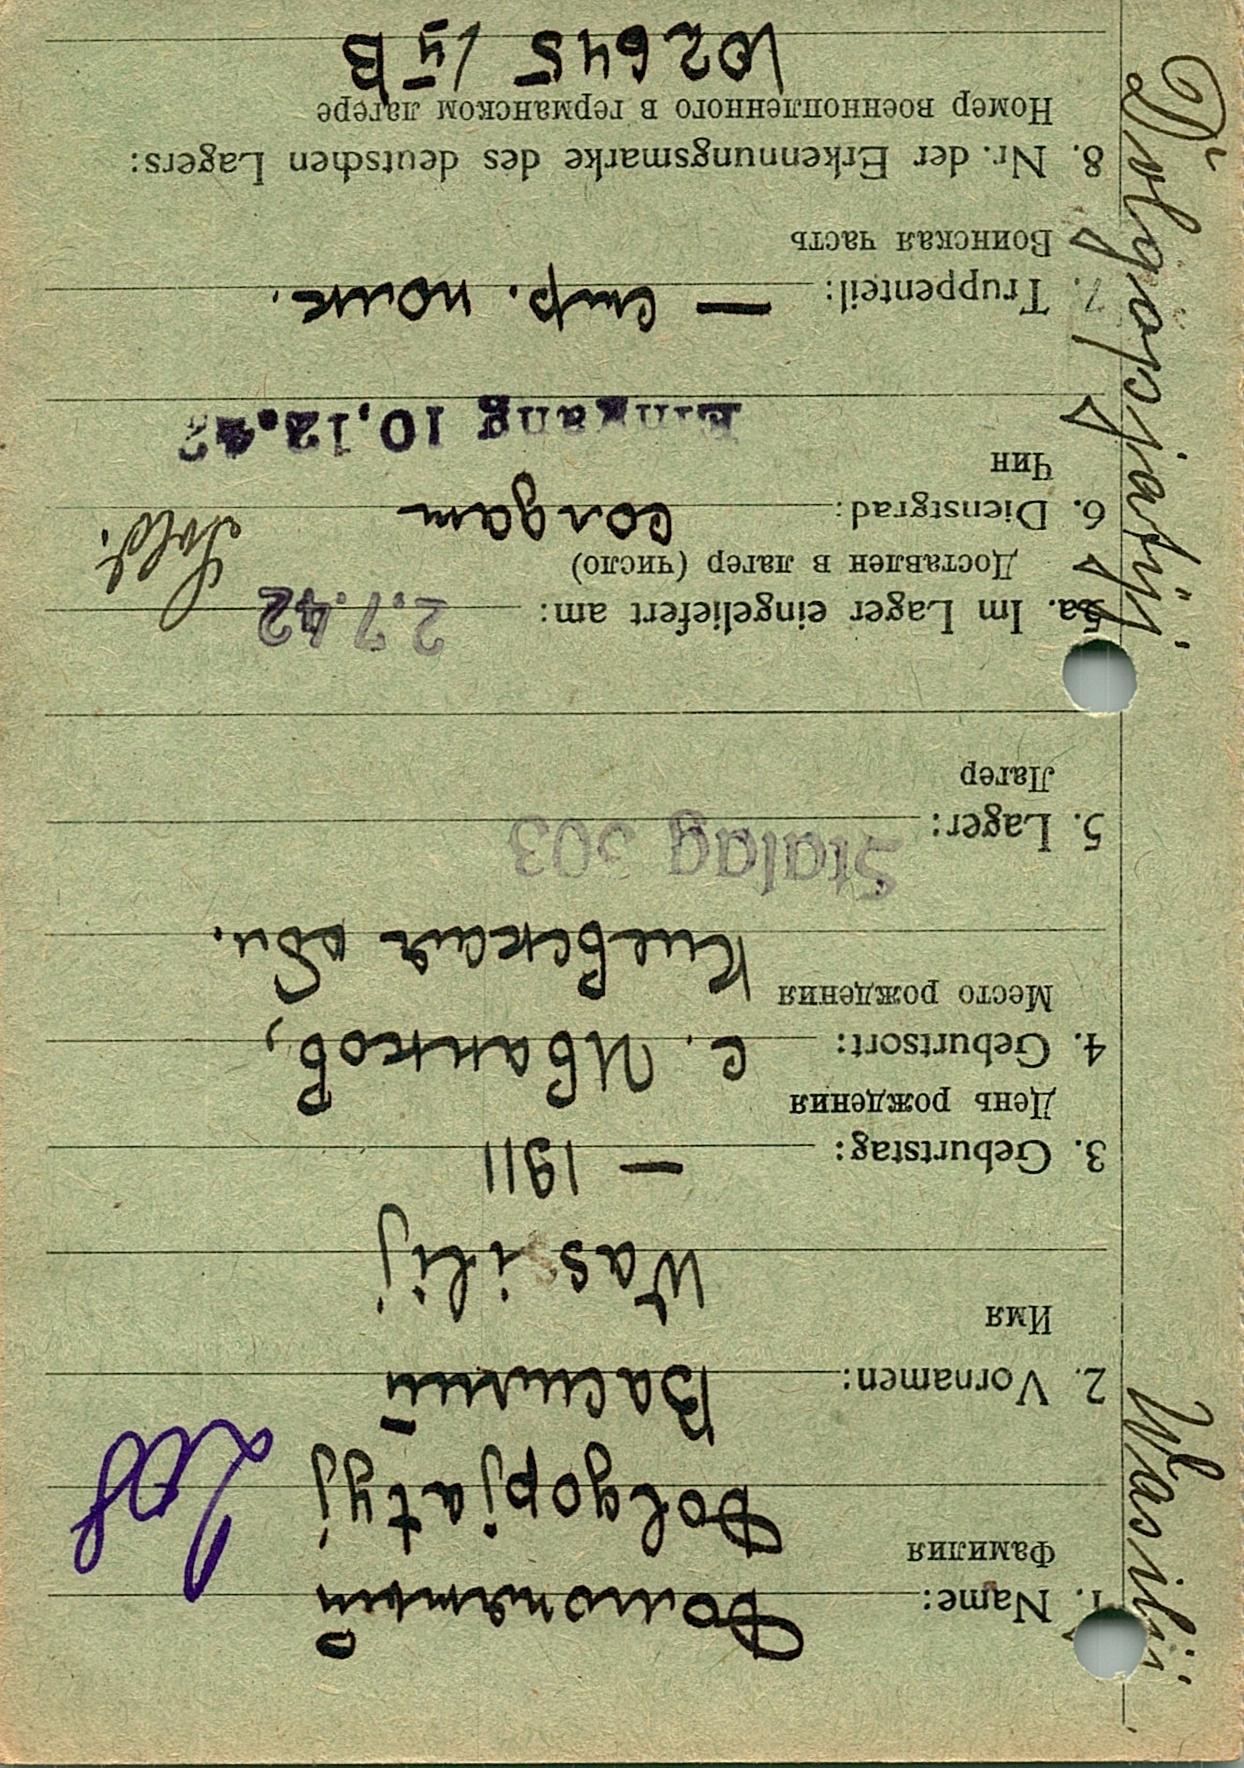 Wasilij Dolgopjatyj
1. Name: Долгопятый
Фамилия
Dolgopjatyj
2. Vornamen: Василий
Имя
Wasilij
3. Geburtstag: — 1911
День рождения
4. Geburtsort: с. Иванков,
Место рождения
Киевская обл.
5. Lager: Stalag 303
Лагер
5a. Im Lager eingeliefert am: 2.7.42
Доставлен в лагер (число)
6. Dienstgrad: солдат Sold.
Чин
Eingang 10.12.42
7. Truppenteil: — стр. полк.
Воинская часть
8. Nr. der Erkennungsmarke des deutschen Lagers:
Номер военнопленного в германском лагере
102645 IV B